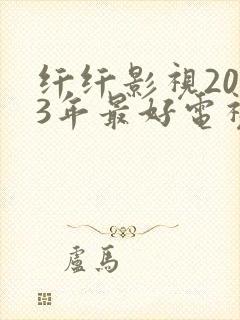 纤纤影視20
3年最好電視
盧馬